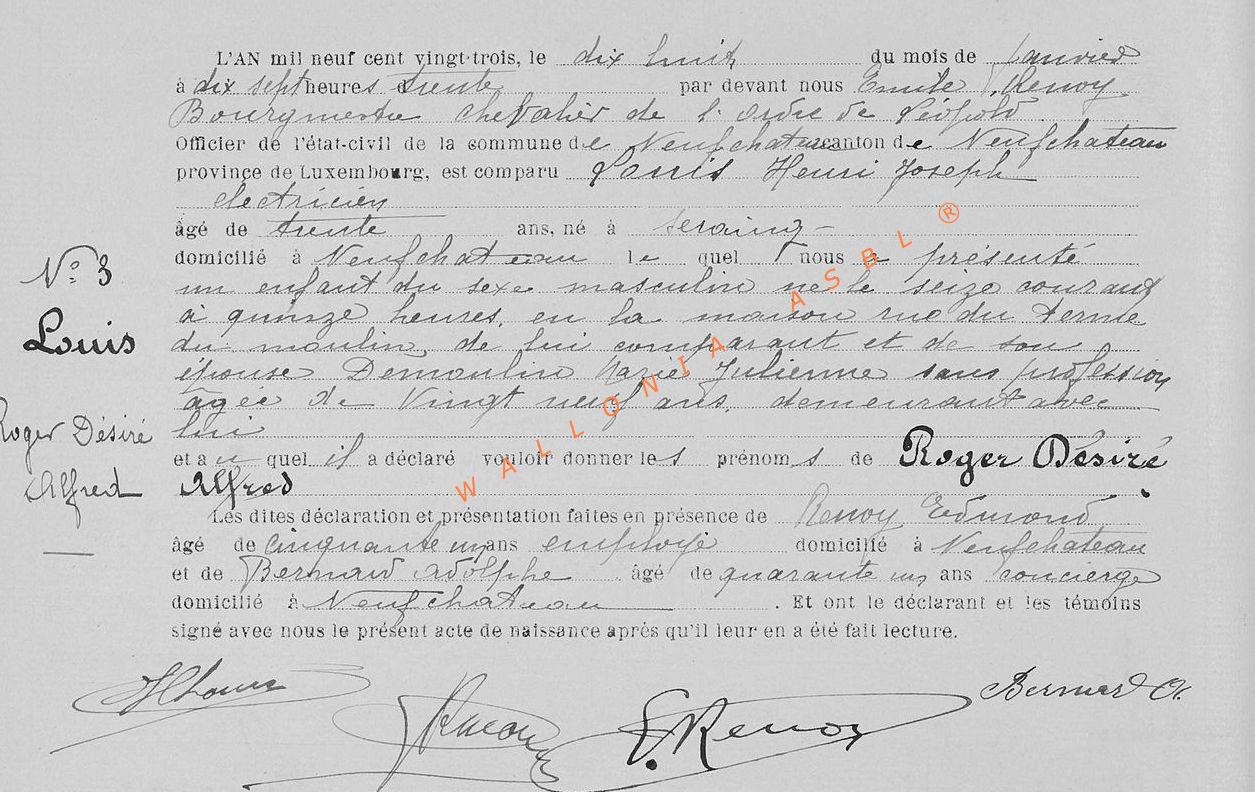 L'AN mil neuf cent vingt-trois, le dix huit du mois de Janvier
à dix sept heures trente par devant nous Emile Renoy
Bourgmestre chevalier de l'ordre de Léopold
Officier de l'état-civil de la commune de Neufchateau canton de Neufchateau
province de Luxembourg, est comparu Louis Henri Joseph
électricien
âgé de trente ans, né à Seraing
domicilié à Neufchateau le quel nous a présenté
un enfant du sexe masculin né le seize courant
à quinze heures, en la maison rue du terme
du moulin, de lui comparant et de son
épouse Demoulin Marie Julienne sans profession
âgée de vingt neuf ans, demeurant avec
lui
et au quel il a déclaré vouloir donner les prénoms de Roger Désiré
Alfred
Les dites déclaration et présentation faites en présence de Renoy Edmond
âgé de cinquante un ans employé domicilié à Neufchateau
et de Bernard Adolphe âgé de quarante un ans concierge
domicilié à Neufchateau . Et ont le déclarant et les témoins
signé avec nous le présent acte de naissance après qu'il leur en a été fait lecture.
N° 3
Louis
Roger Désiré
Alfred
HLouis
Renoy
E. Renoy
Bernard A.
WALLONIA ASBL ®